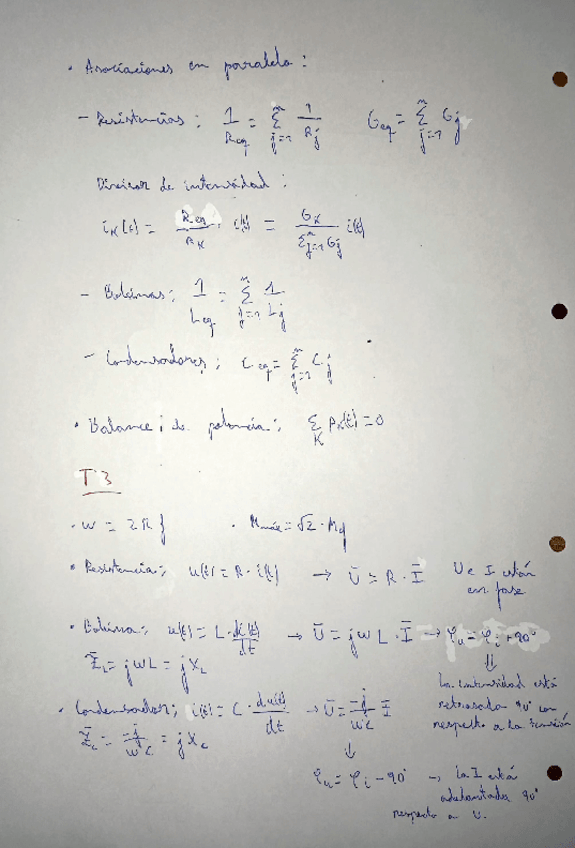 • Asociaciones en paralelo:
- Resistencias: 1/Req = Σ_{j=1}^{n} 1/Rj   Geq = Σ_{j=1}^{n} Gj
Divisor de intensidad:
iK(t) = Req/RK · i(t) = GK/Σ_{j=1}^{n} Gj i(t)
- Bobinas: 1/Leq = Σ_{j=1}^{n} 1/Lj
- Condensadores: Ceq = Σ_{j=1}^{n} Cj
• Balance de potencia: Σ_K pK(t) = 0
T3
• w = 2π f   • Mmáx = √2 · Mef
• Resistencia: u(t) = R · i(t) → Ū = R · Ī   U e I están
en fase
• Bobina: u(t) = L · di(t)/dt → Ū = jwL · Ī → φu = φi + 90°
Z̄L = jwL = jXL   ⇓
La intensidad está
retrasada 90° con
respecto a la tensión
• Condensador: i(t) = C · du(t)/dt → Ū = -j/wC Ī
Z̄c = -j/wC = jXc   ↓
φu = φi - 90° → la I está
adelantada 90°
respecto a U.